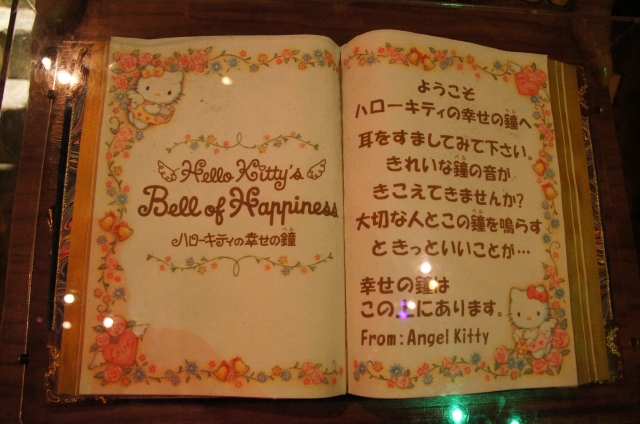 Hello Kitty's
Bell of Happiness
ハローキティの幸せの鐘
ようこそ
ハローキティの幸せの鐘へ
耳をすましてみて下さい。
きれいな鐘の音が
きこえてきませんか?
大切な人とこの鐘を鳴らす
ときっといいことが…
幸せの鐘は
この上にあります。
From:Angel Kitty